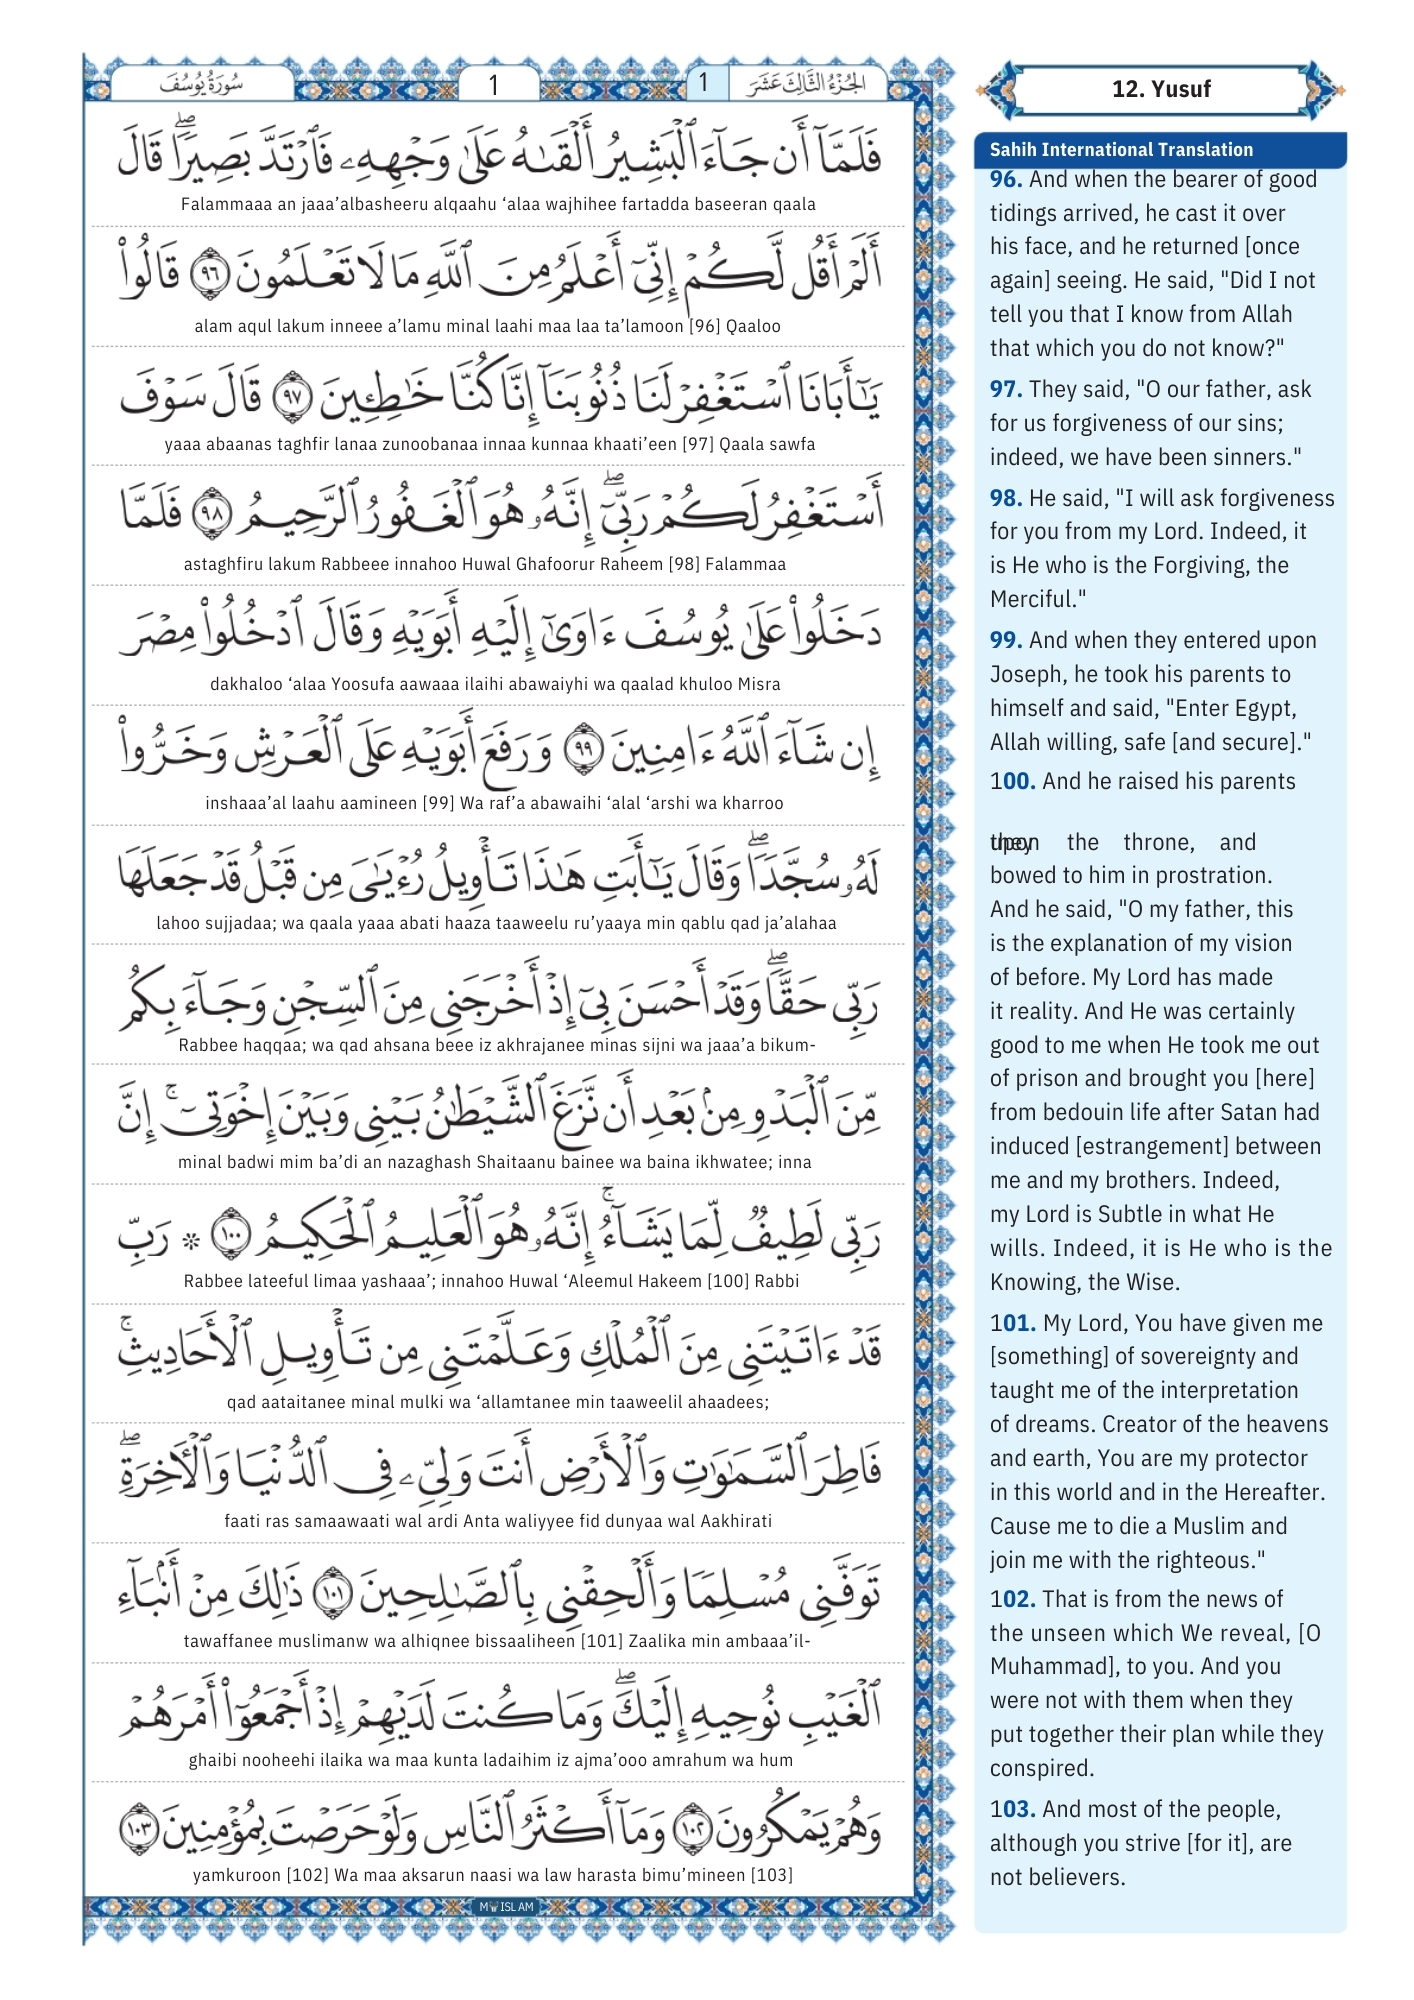 سُورَةُ يُوسُفَ
1
1
الجُزْءُ الثَّالِثَ عَشَرَ
فَلَمَّآ أَن جَآءَ ٱلْبَشِيرُ أَلْقَىٰهُ عَلَىٰ وَجْهِهِۦ فَٱرْتَدَّ بَصِيرًاۖ قَالَ
Falammaaa an jaaa’albasheeru alqaahu ‘alaa wajhihee fartadda baseeran qaala
أَلَمْ أَقُل لَّكُمْ إِنِّىٓ أَعْلَمُ مِنَ ٱللَّهِ مَا لَا تَعْلَمُونَ ٩٦ قَالُوا۟
alam aqul lakum inneee a’lamu minal laahi maa laa ta’lamoon [96] Qaaloo
يَـٰٓأَبَانَا ٱسْتَغْفِرْ لَنَا ذُنُوبَنَآ إِنَّا كُنَّا خَـٰطِـِٔينَ ٩٧ قَالَ سَوْفَ
yaaa abaanas taghfir lanaa zunoobanaa innaa kunnaa khaati’een [97] Qaala sawfa
أَسْتَغْفِرُ لَكُمْ رَبِّىٓۖ إِنَّهُۥ هُوَ ٱلْغَفُورُ ٱلرَّحِيمُ ٩٨ فَلَمَّا
astaghfiru lakum Rabbeee innahoo Huwal Ghafoorur Raheem [98] Falammaa
دَخَلُوا۟ عَلَىٰ يُوسُفَ ءَاوَىٰٓ إِلَيْهِ أَبَوَيْهِ وَقَالَ ٱدْخُلُوا۟ مِصْرَ
dakhaloo ‘alaa Yoosufa aawaaa ilaihi abawaiyhi wa qaalad khuloo Misra
إِن شَآءَ ٱللَّهُ ءَامِنِينَ ٩٩ وَرَفَعَ أَبَوَيْهِ عَلَى ٱلْعَرْشِ وَخَرُّوا۟
inshaaa’al laahu aamineen [99] Wa raf’a abawaihi ‘alal ‘arshi wa kharroo
لَهُۥ سُجَّدًاۖ وَقَالَ يَـٰٓأَبَتِ هَـٰذَا تَأْوِيلُ رُءْيَـٰىَ مِن قَبْلُ قَدْ جَعَلَهَا
lahoo sujjadaa; wa qaala yaaa abati haaza taaweelu ru’yaaya min qablu qad ja’alahaa
رَبِّى حَقًّاۖ وَقَدْ أَحْسَنَ بِىٓ إِذْ أَخْرَجَنِى مِنَ ٱلسِّجْنِ وَجَآءَ بِكُم
Rabbee haqqaa; wa qad ahsana beee iz akhrajanee minas sijni wa jaaa’a bikum-
مِّنَ ٱلْبَدْوِ مِنۢ بَعْدِ أَن نَّزَغَ ٱلشَّيْطَـٰنُ بَيْنِى وَبَيْنَ إِخْوَتِىٓۚ إِنَّ
minal badwi mim ba’di an nazaghash Shaitaanu bainee wa baina ikhwatee; inna
رَبِّى لَطِيفٌ لِّمَا يَشَآءُۚ إِنَّهُۥ هُوَ ٱلْعَلِيمُ ٱلْحَكِيمُ ١٠٠ ۞ رَبِّ
Rabbee lateeful limaa yashaaa’; innahoo Huwal ‘Aleemul Hakeem [100] Rabbi
قَدْ ءَاتَيْتَنِى مِنَ ٱلْمُلْكِ وَعَلَّمْتَنِى مِن تَأْوِيلِ ٱلْأَحَادِيثِۚ
qad aataitanee minal mulki wa ‘allamtanee min taaweelil ahaadees;
فَاطِرَ ٱلسَّمَـٰوَٰتِ وَٱلْأَرْضِ أَنتَ وَلِىِّۦ فِى ٱلدُّنْيَا وَٱلْـَٔاخِرَةِۖ
faati ras samaawaati wal ardi Anta waliyyee fid dunyaa wal Aakhirati
تَوَفَّنِى مُسْلِمًا وَأَلْحِقْنِى بِٱلصَّـٰلِحِينَ ١٠١ ذَٰلِكَ مِنْ أَنۢبَآءِ
tawaffanee muslimanw wa alhiqnee bissaaliheen [101] Zaalika min ambaaa’il-
ٱلْغَيْبِ نُوحِيهِ إِلَيْكَۖ وَمَا كُنتَ لَدَيْهِمْ إِذْ أَجْمَعُوٓا۟ أَمْرَهُمْ
ghaibi nooheehi ilaika wa maa kunta ladaihim iz ajma’ooo amrahum wa hum
وَهُمْ يَمْكُرُونَ ١٠٢ وَمَآ أَكْثَرُ ٱلنَّاسِ وَلَوْ حَرَصْتَ بِمُؤْمِنِينَ ١٠٣
yamkuroon [102] Wa maa aksarun naasi wa law harasta bimu’mineen [103]
12. Yusuf
Sahih International Translation
96. And when the bearer of good
tidings arrived, he cast it over
his face, and he returned [once
again] seeing. He said, "Did I not
tell you that I know from Allah
that which you do not know?"
97. They said, "O our father, ask
for us forgiveness of our sins;
indeed, we have been sinners."
98. He said, "I will ask forgiveness
for you from my Lord. Indeed, it
is He who is the Forgiving, the
Merciful."
99. And when they entered upon
Joseph, he took his parents to
himself and said, "Enter Egypt,
Allah willing, safe [and secure]."
100. And he raised his parents
upon the throne, and
they
bowed to him in prostration.
And he said, "O my father, this
is the explanation of my vision
of before. My Lord has made
it reality. And He was certainly
good to me when He took me out
of prison and brought you [here]
from bedouin life after Satan had
induced [estrangement] between
me and my brothers. Indeed,
my Lord is Subtle in what He
wills. Indeed, it is He who is the
Knowing, the Wise.
101. My Lord, You have given me
[something] of sovereignty and
taught me of the interpretation
of dreams. Creator of the heavens
and earth, You are my protector
in this world and in the Hereafter.
Cause me to die a Muslim and
join me with the righteous."
102. That is from the news of
the unseen which We reveal, [O
Muhammad], to you. And you
were not with them when they
put together their plan while they
conspired.
103. And most of the people,
although you strive [for it], are
not believers.
M ISLAM